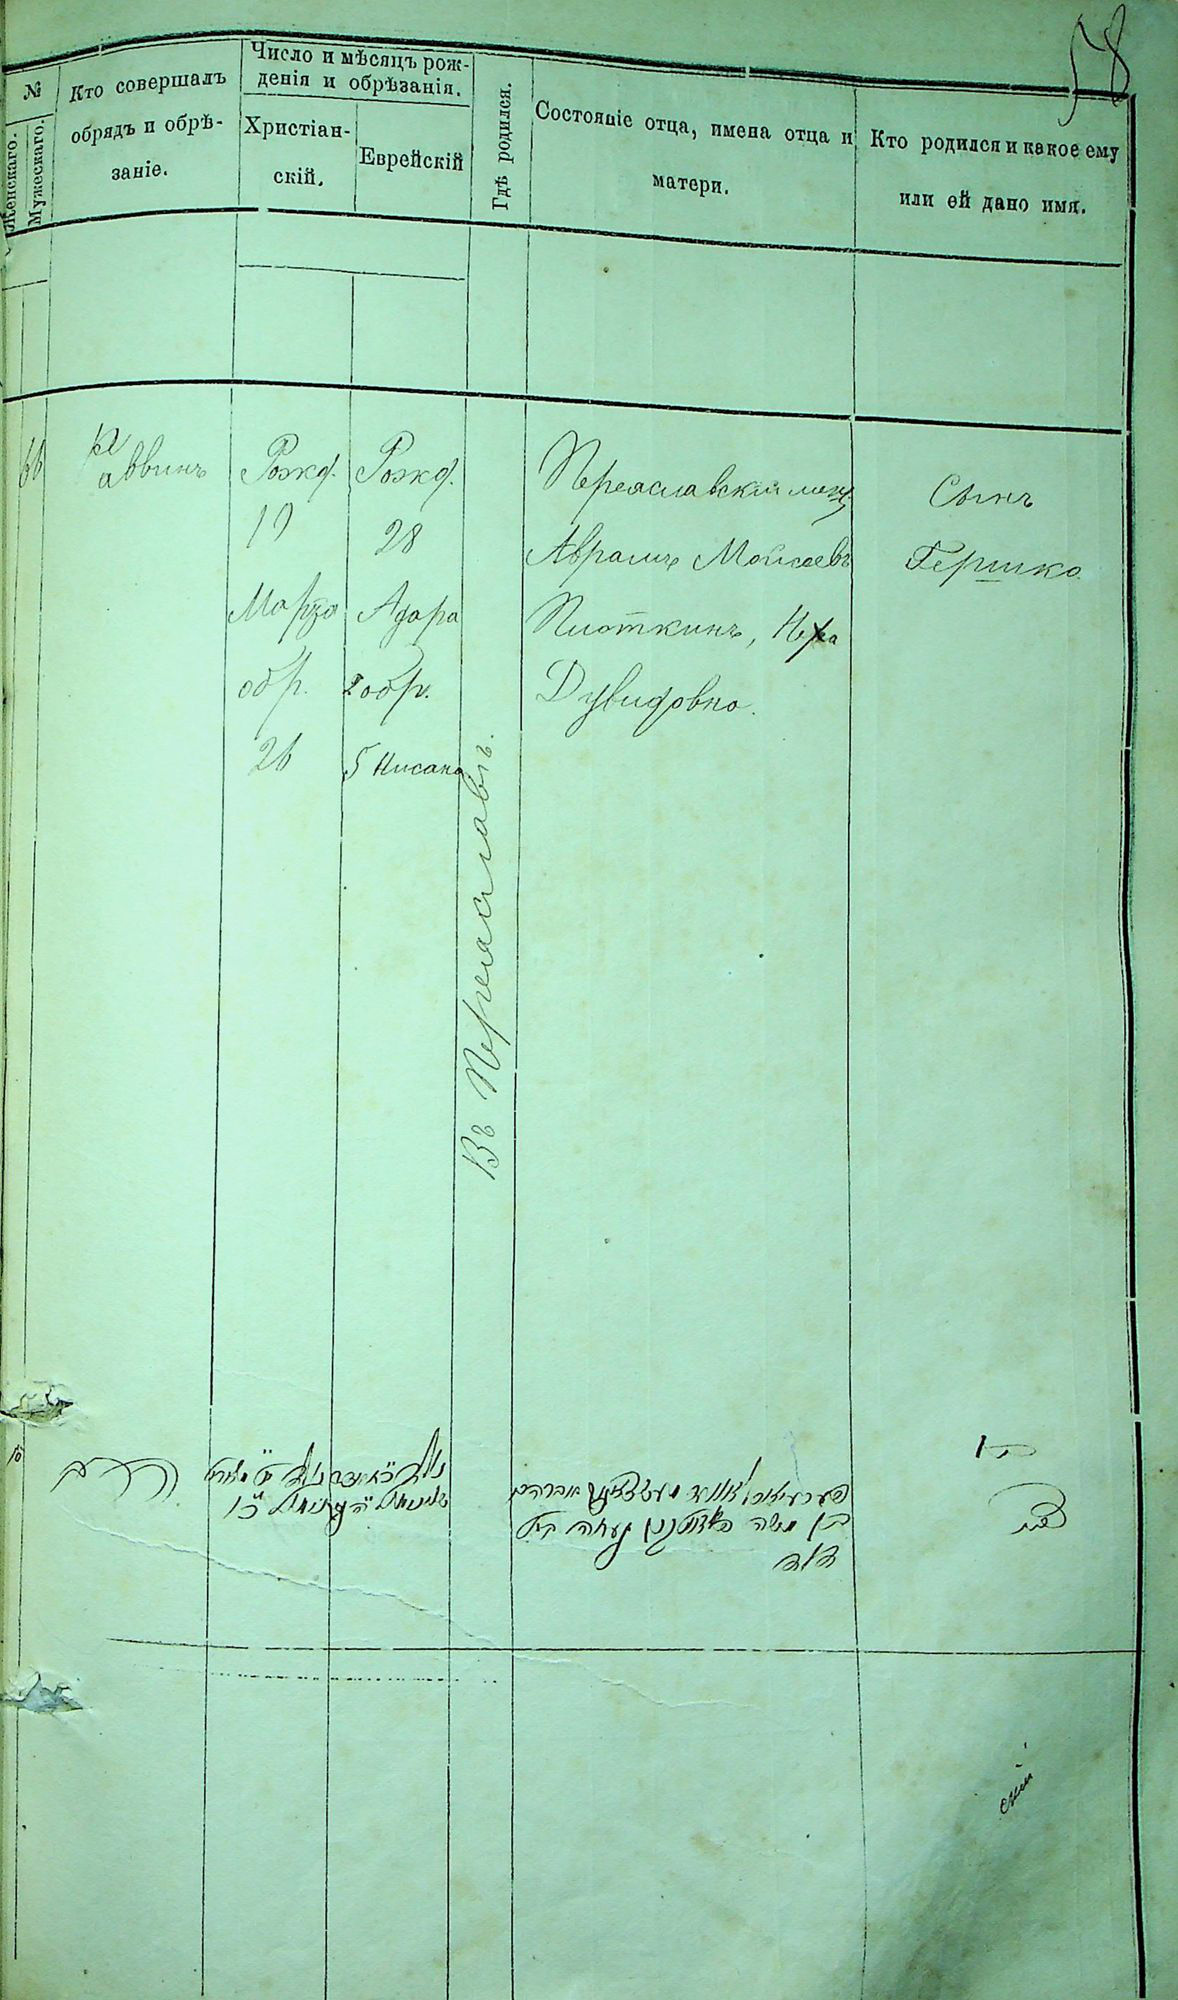 58
№
Женскаго.
Мужескаго.
Кто совершалъ
обрядъ и обрѣ-
заніе.
Число и мѣсяцъ рож-
денія и обрѣзанія.
Христіан-
скій.
Еврейскій
Гдѣ родился.
Состояніе отца, имена отца и
матери.
Кто родился и какое ему
или ей дано имя.
66
Раввинъ
Рожд.
19
Марта
обр.
26
Рожд.
28
Адара
обр.
5 Нисана
Въ Переяславѣ.
Переяславскій мещ.
Аврамъ Моисеевъ
Плоткинъ, Неха
Дувидовна.
Сынъ
Гершко
הרב
אברהם
בן משה
דוד
בן